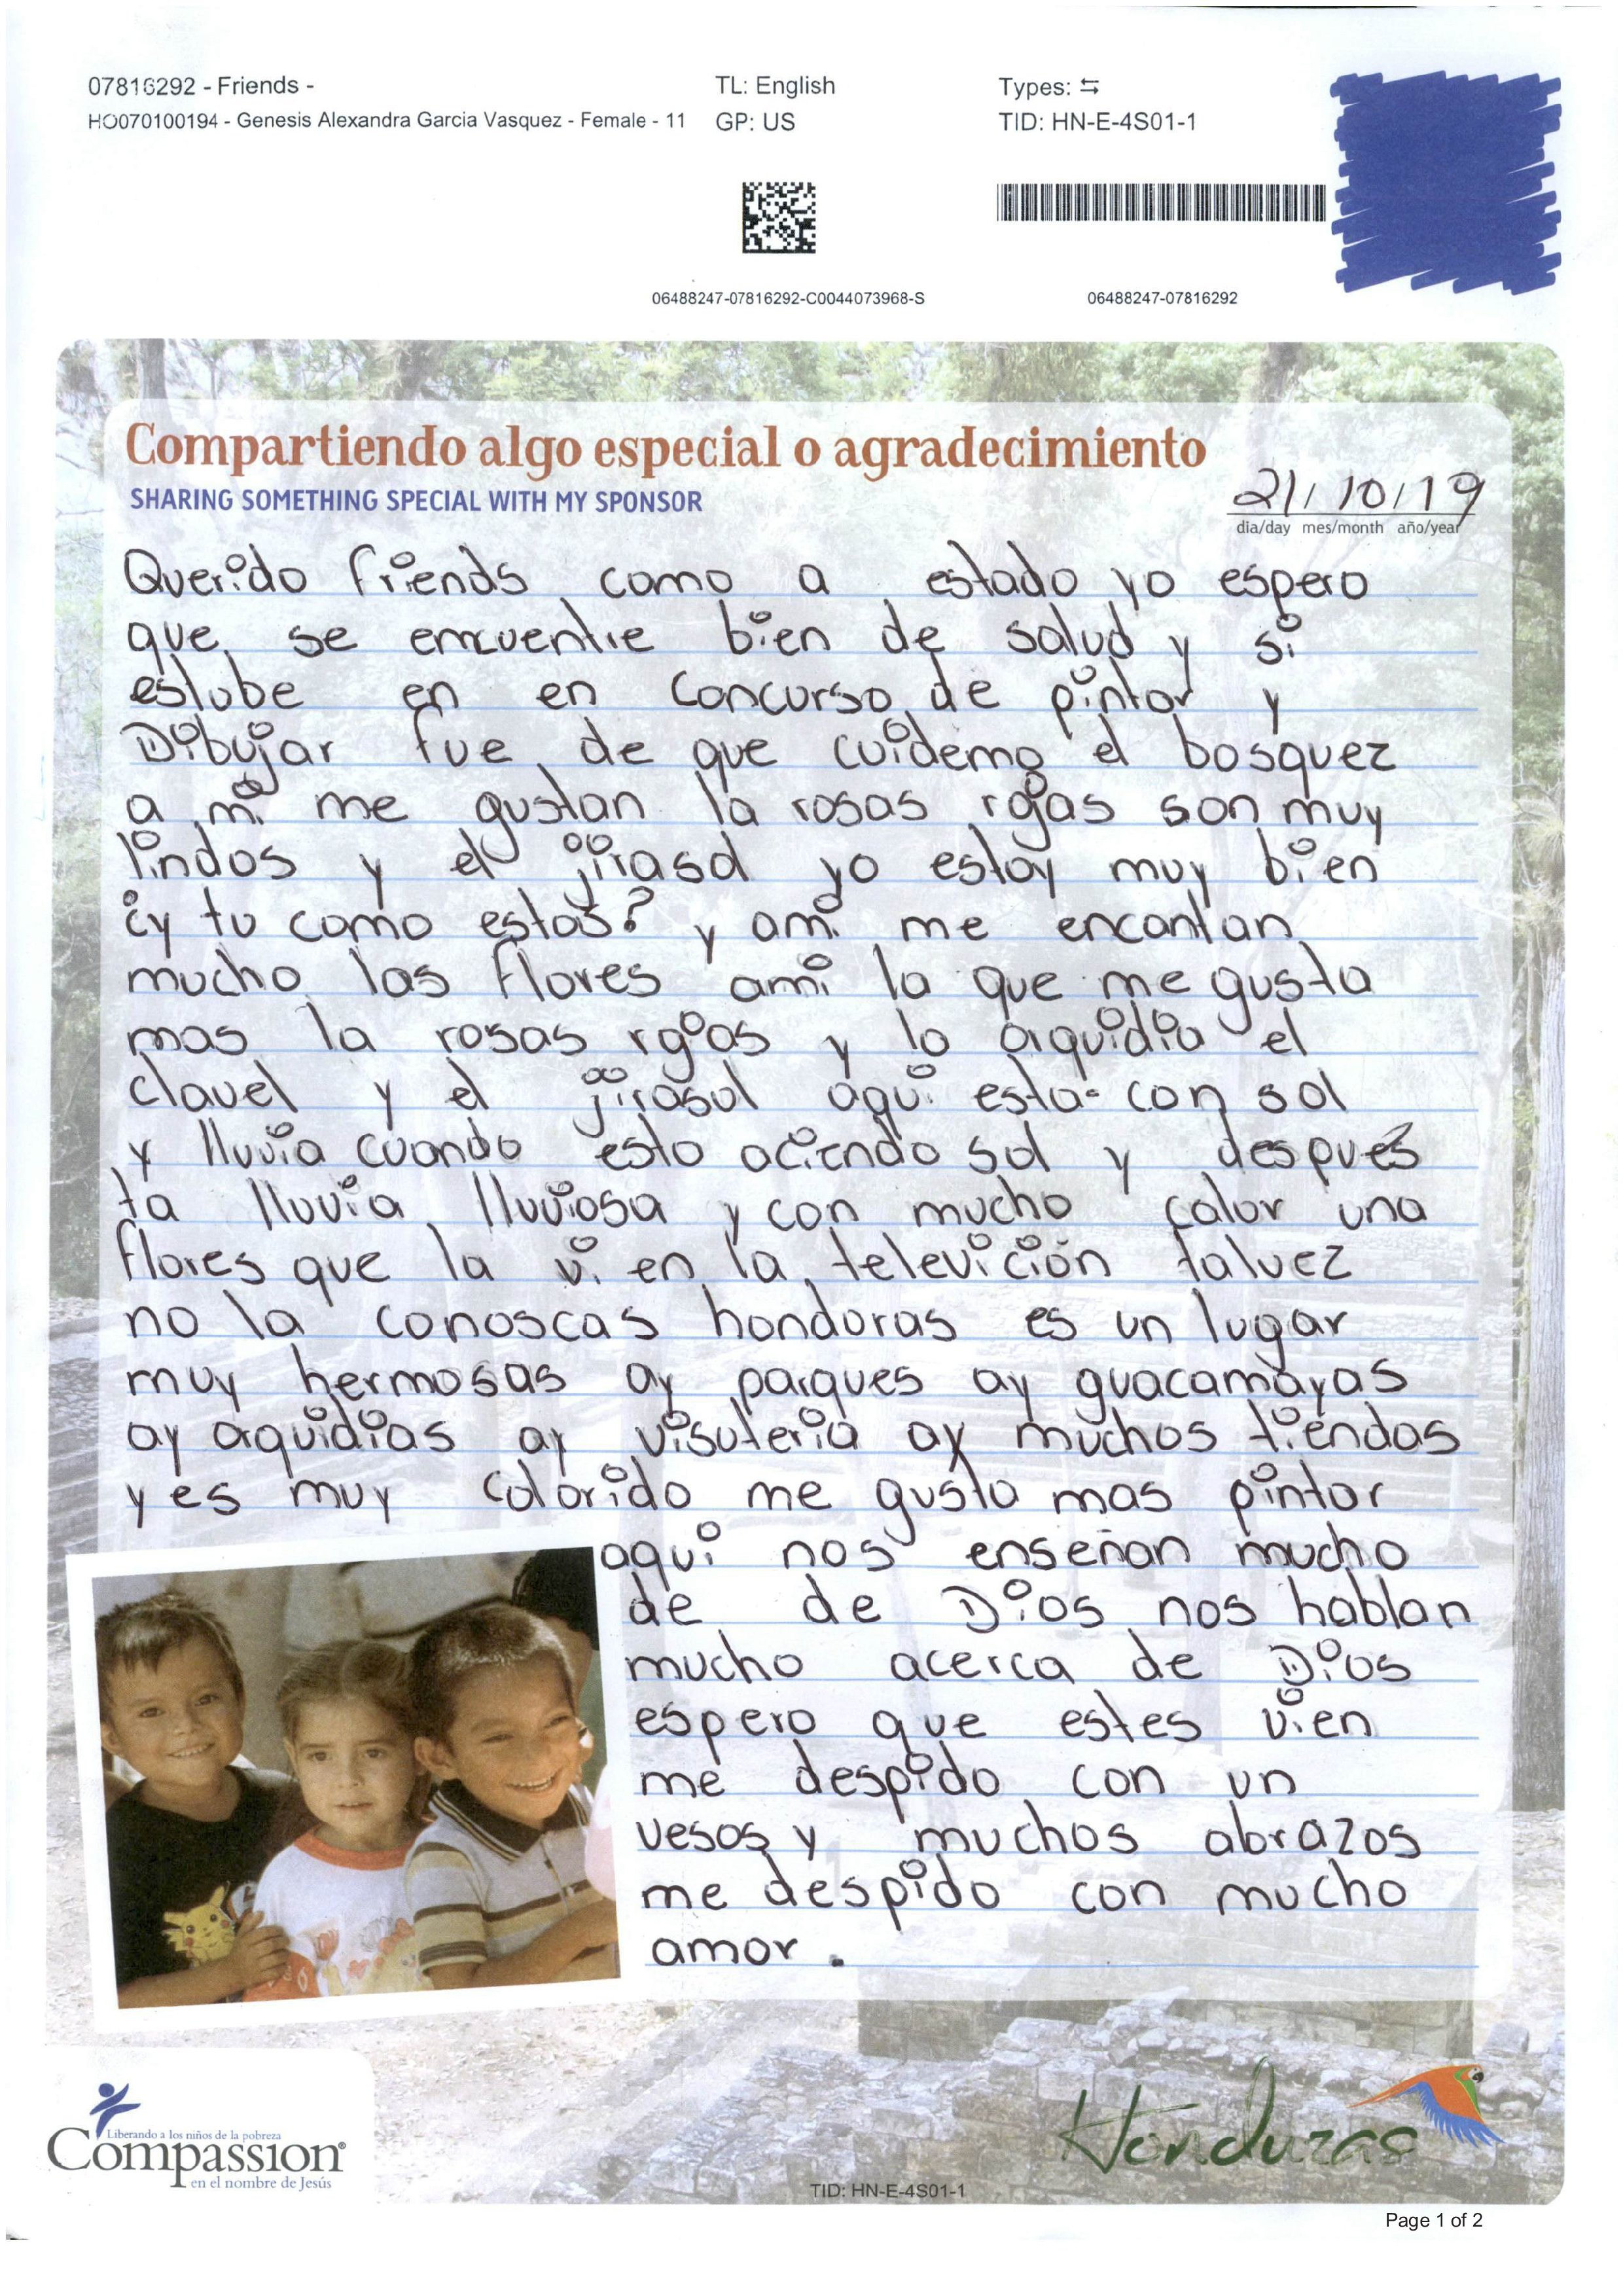 07816292 - Friends -
TL: English
Types: ⇆
HO070100194 - Genesis Alexandra Garcia Vasquez - Female - 11
GP: US
TID: HN-E-4S01-1
06488247-07816292-C0044073968-S
06488247-07816292
Compartiendo algo especial o agradecimiento
SHARING SOMETHING SPECIAL WITH MY SPONSOR
21/10/19
dia/day mes/month año/year
Querido friends como a estado yo espero
que se encuentre bien de salud y si
estube en en concurso de pintar y
Dibujar fue de que cuidemo el bosquez
a mi me gustan la rosas rojas son muy
lindos y el jirasol yo estoy muy bien
¿y tu como estas? y ami me encantan
mucho las flores ami la que me gusta
mas la rosas rojas y la orquidia el
clavel y el jirasol aqui esta con sol
y lluvia cuando esta aciendo sol y después
ta lluvia lluviosa y con mucho calor una
flores que la vi en la televición talvez
no la conoscas honduras es un lugar
muy hermosas ay parques ay guacamayas
ay orquidias ay visuteria ay muchos tiendas
y es muy colorido me gusta mas pintar
aqui nos enseñan mucho
de de Dios nos hablan
mucho acerca de Dios
espero que estes vien
me despido con un
vesos y muchos abrazos
me despido con mucho
amor.
Liberando a los niños de la pobreza
Compassion®
en el nombre de Jesús
Honduras
TID: HN-E-4S01-1
Page 1 of 2